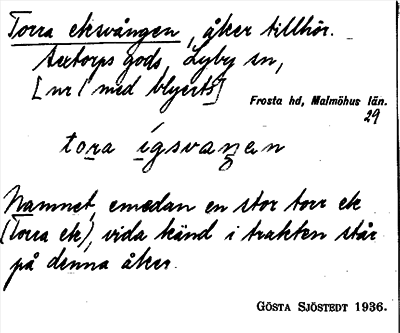 Torra eksvången, åker tillhör.
Axtorps gods, Lyby sn,
[nr 1 med blyerts]
Frosta hd, Malmöhus län.
29
tora igsvaŋen
Namnet, emedan en stor torr ek
(Torra ek), vida känd i trakten står
på denna åker.
GÖSTA SJÖSTEDT 1936.